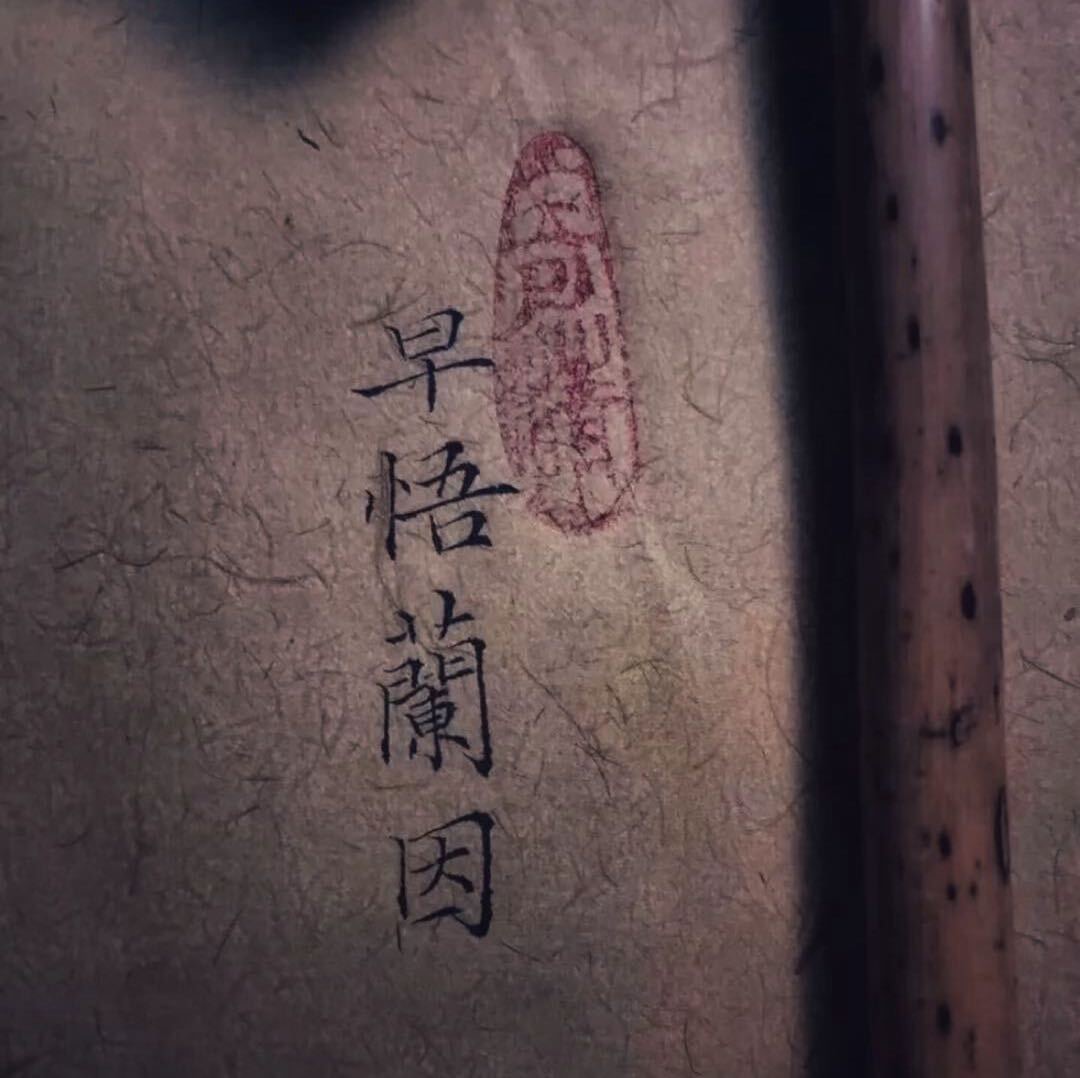 早悟蘭因